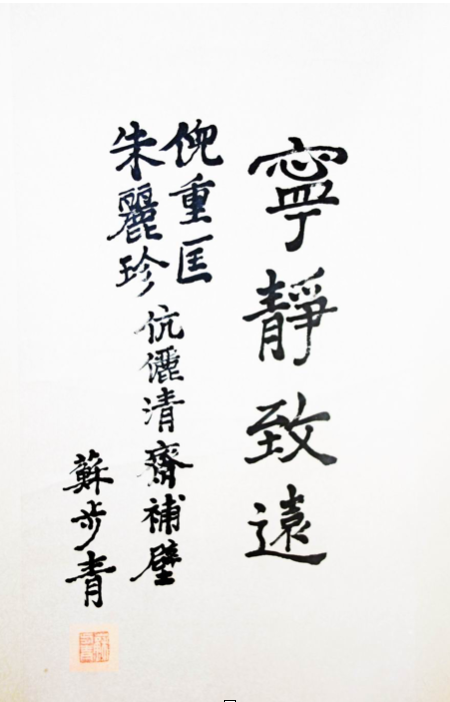 寧靜致遠
倪重匡
朱麗珍
伉儷清齋補壁
蘇步青